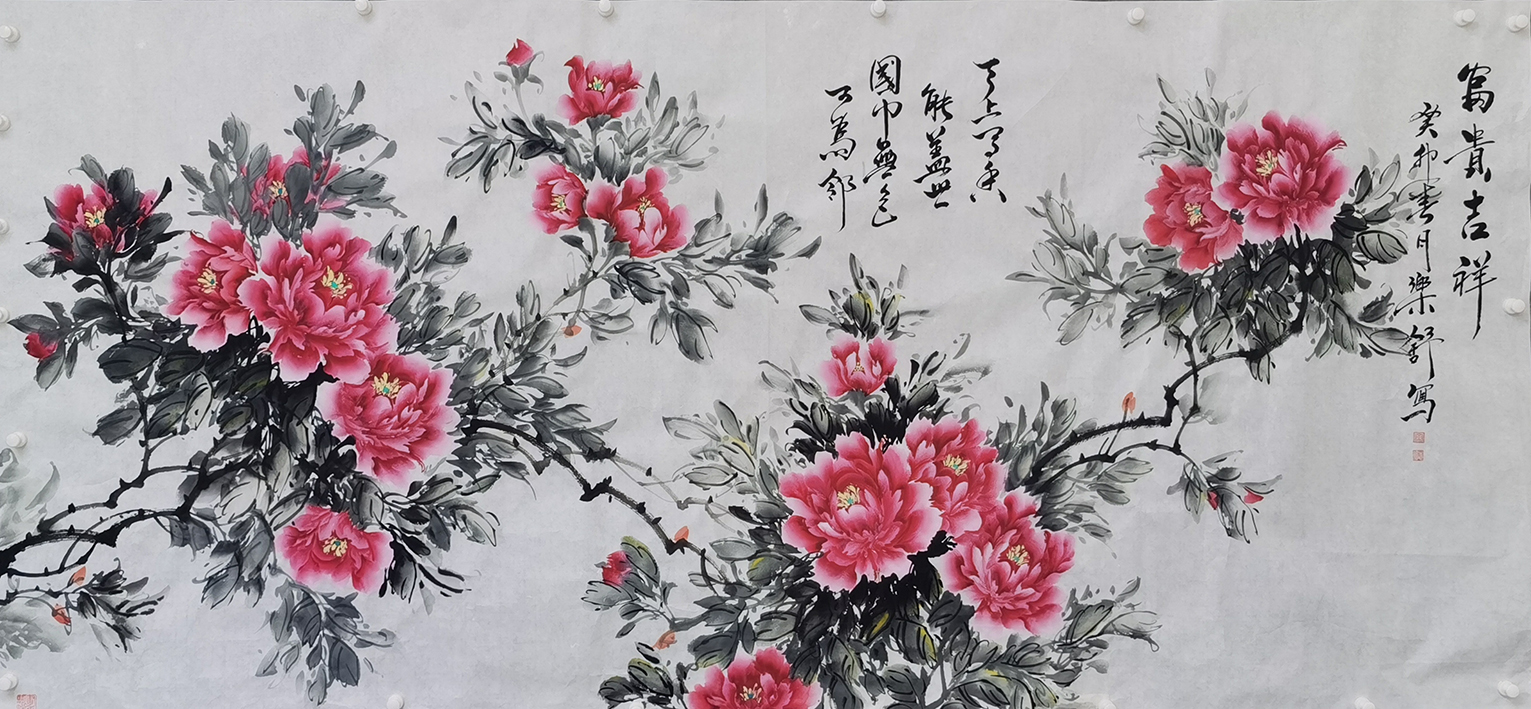 富貴吉祥
癸卯春月樂舒寫
天上有香
能蓋世
國中無色
可為鄰